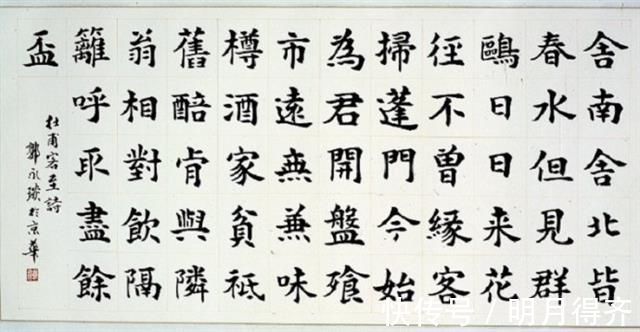 舍南舍北皆
春水但見群
鷗日日来花
徑不曾緣客
掃蓬門今始
為君開盤飧
市遠無兼味
樽酒家貧祗
舊醅肯與隣
翁相對飲隔
籬呼取盡餘
盃
杜甫客至詩
郭永琰於京華
快传号/明月得齐